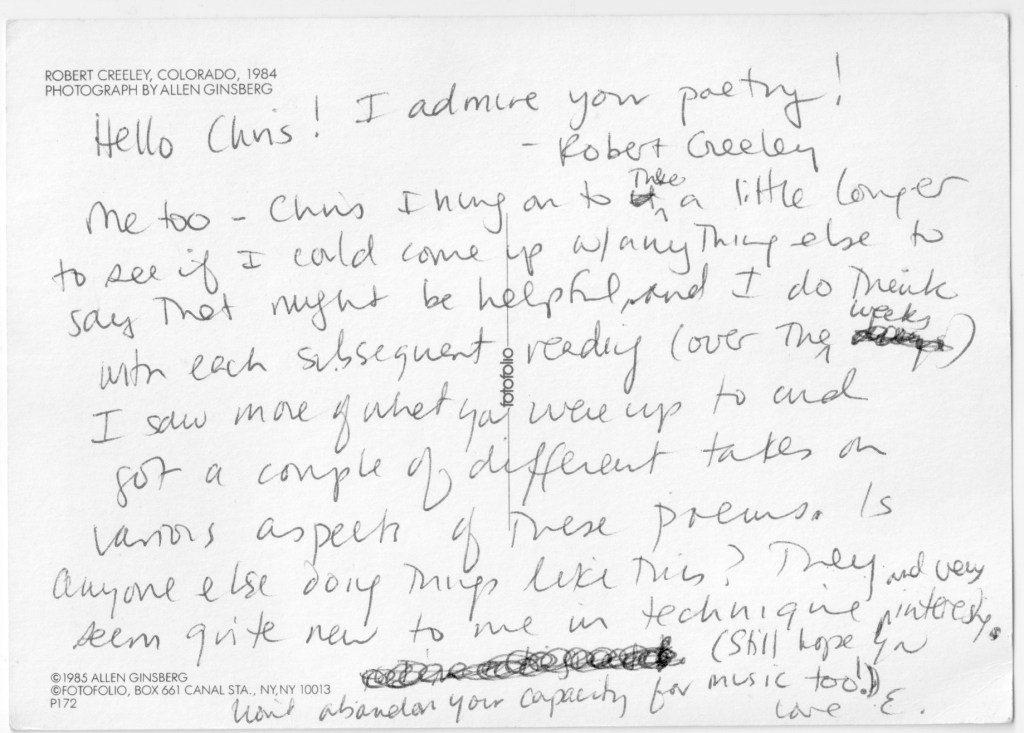 ROBERT CREELEY, COLORADO, 1984
PHOTOGRAPH BY ALLEN GINSBERG
Hello Chris! I admire your poetry!
- Robert Creeley
Me too - Chris I hung on to these a little longer
to see if I could come up w/anything else to
say that might be helpful, and I do think
with each subsequent reading (over the weeks)
I saw more of what you were up to and
got a couple of different takes on
various aspects of these poems. Is
anyone else doing things like this? They
seem quite new to me in technique and very interesting.
(Still hope you
won't abandon your capacity for music too!)
Love E.
fotofolio
©1985 ALLEN GINSBERG
©FOTOFOLIO, BOX 661 CANAL STA., NY, NY 10013
P172